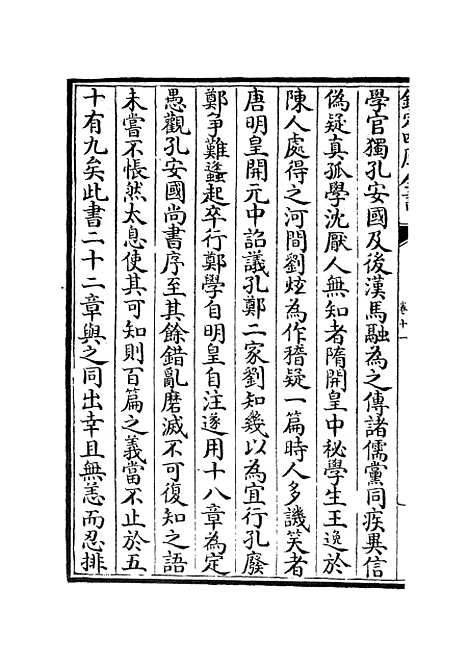 卷十一
學官獨孔安國及後漢馬融為之傳諸儒黨同疾異信
偽疑真孤學沈厭人無知者隋開皇中秘學生王逸於
陳人處得之河間劉炫為作稽疑一篇時人多譏笑者
唐明皇開元中詔議孔鄭二家劉知幾以為宜行孔廢
鄭爭難蠭起卒行鄭學自明皇自注遂用十八章為定
愚觀孔安國尚書序至其餘錯亂磨滅不可復知之語
未嘗不悵然太息使其可知則百篇之義當不止於五
十有九矣此書二十二章與之同出幸且無恙而忍排